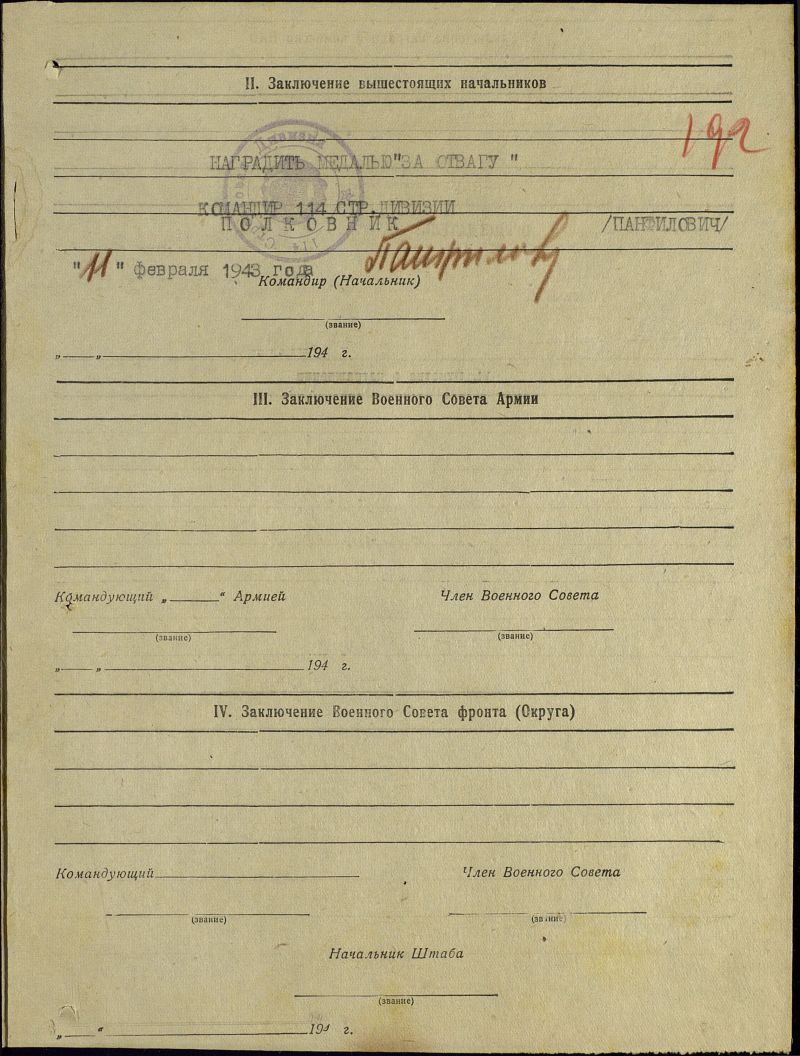 II. Заключение вышестоящих начальников
192
НАГРАДИТЬ МЕДАЛЬЮ "ЗА ОТВАГУ "
КОМАНДИР 114 СТР.ДИВИЗИИ
ПОЛКОВНИК /ПАНФИЛОВИЧ/
"11" февраля 1943 года
Командир (Начальник)
(звание)
„ „ 194 г.
III. Заключение Военного Совета Армии
Командующий „ “ Армией Член Военного Совета
(звание) (звание)
„ „ 194 г.
IV. Заключение Военного Совета фронта (Округа)
Командующий Член Военного Совета
(звание) (звание)
Начальник Штаба
(звание)
„ “ 194 г.